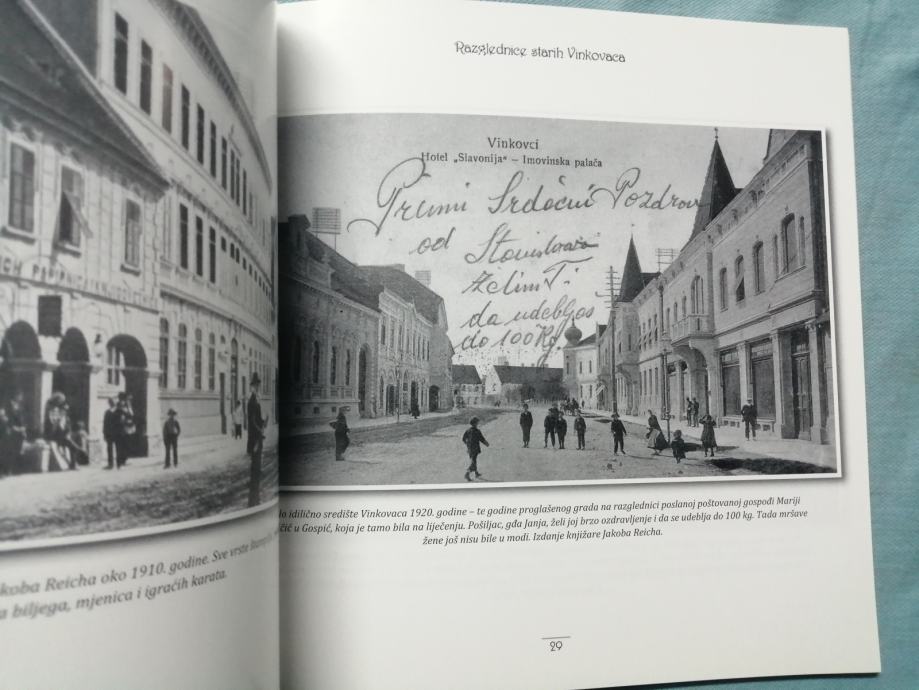 PAPIRNICA I KNJIGOVEŽNICA
koba Reicha oko 1910. godine. Sve vrste
a biljega, mjenica i igraćih karata.
Razglednice starih Vinkovaca
Vinkovci
Hotel „Slavonija" – Imovinska palača
Primi Srdačni Pozdrav
od
želim Ti
da udebljaš
do 100 kg
lo idilično središte Vinkovaca 1920. godine – te godine proglašenog grada na razglednici poslanoj poštovanoj gospođi Mariji
čić u Gospić, koja je tamo bila na liječenju. Pošiljac, gđa Janja, želi joj brzo ozdravljenje i da se udeblja do 100 kg. Tada mršave
žene još nisu bile u modi. Izdanje knjižare Jakoba Reicha.
29